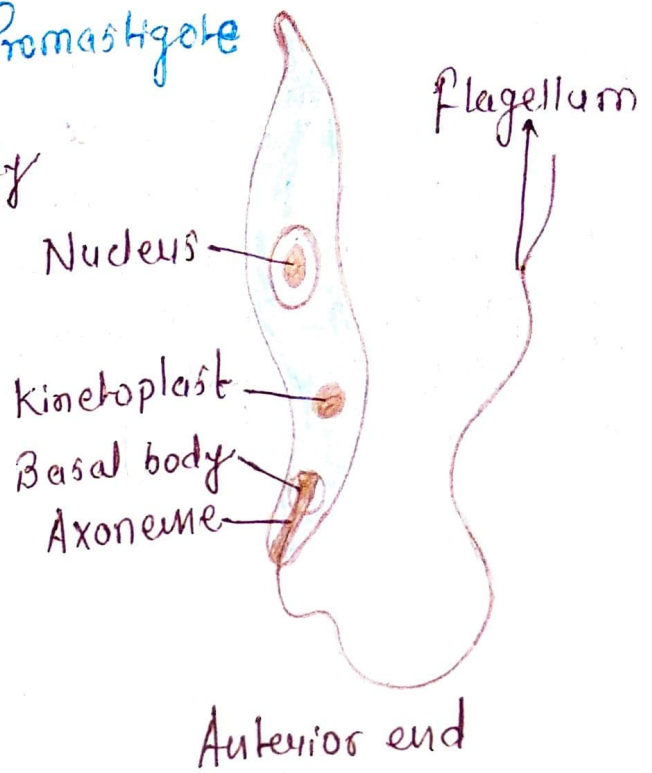 Promastigote
Flagellum
y
Nucleus
Kinetoplast
Basal body
Axoneme
Anterior end